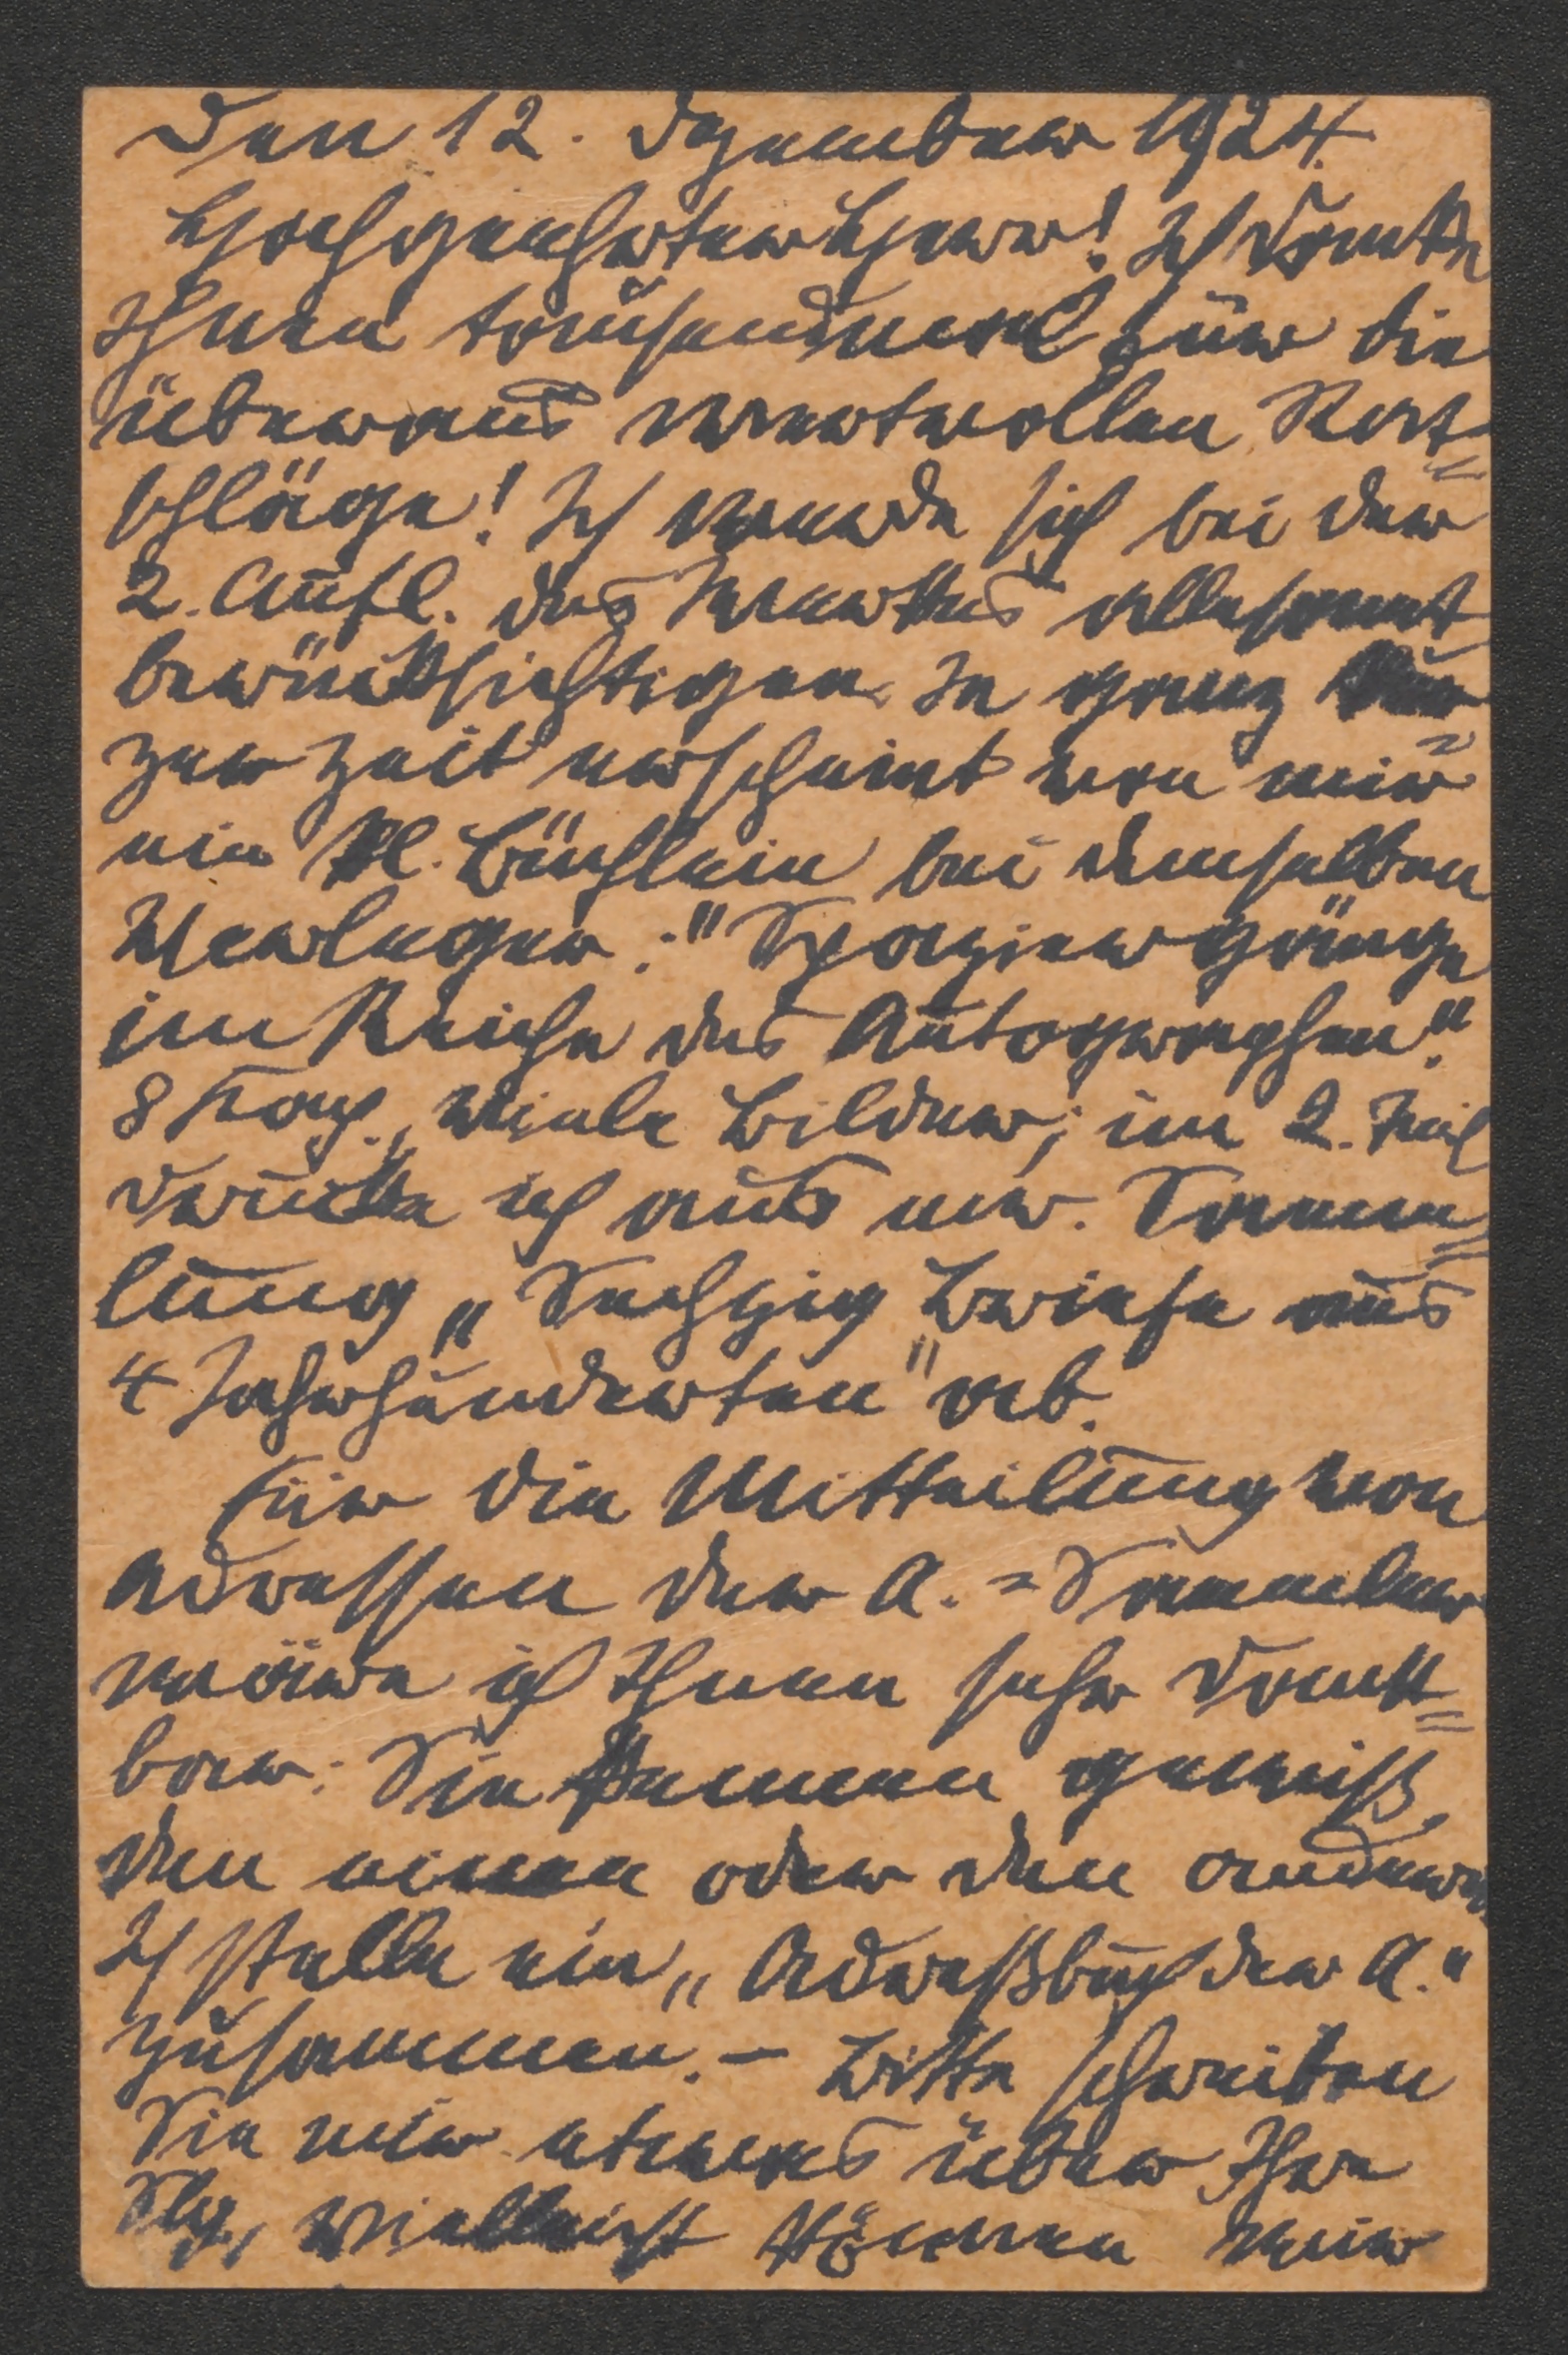 Den 12. Dezember 1924.
Hochgeehrter Herr! Ich danke
Ihnen tausendmal für die
überaus wertvollen Rat=
schläge! Ich werde sich bei der
2. Aufl. des Werkes allesamt
berücksichtigen. In ganz kur=
zer Zeit erscheint von mir
ein kl. Büchlein bei demselben
Verleger: "Spaziergänge
im Reiche des Autographen".
8 Kap., viele Bilder; im 2. Teil
drucke ich aus mr. Samm=
lung „Sechzig Briefe aus
4 Jahrhunderten" ab.
Für die Mitteilung von
Adressen der A.=Sammler
wäre ich Ihnen sehr dank=
bar: Sie kennen gewiß
den einen oder den andern.
Ich stelle ein „Adreßbuch der A."
zusammen. – Bitte schreiben
Sie mir etwas über Ihre
Slg., vielleicht können wir